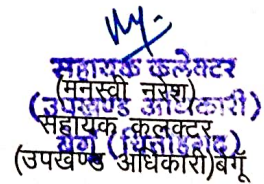 सहायक कलेक्टर
(मनस्वी नरेश)
(उपखण्ड अधिकारी)
सहायक कलक्टर
बेगूं (चित्तौड़गढ़)
(उपखण्ड अधिकारी)बेगूँ